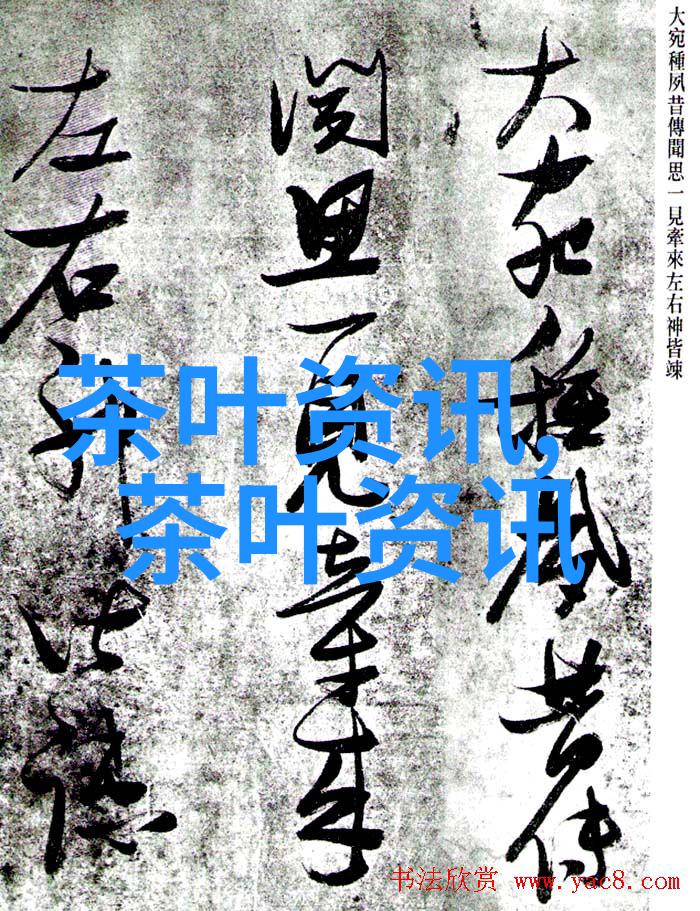 大宛種夙昔傳聞思一見牽來左右神皆竦
大宛種夙昔傳
聞思一見牽來
左右神皆竦
茶叶资讯,
茶叶资讯
书法欣赏 www.yac8.com